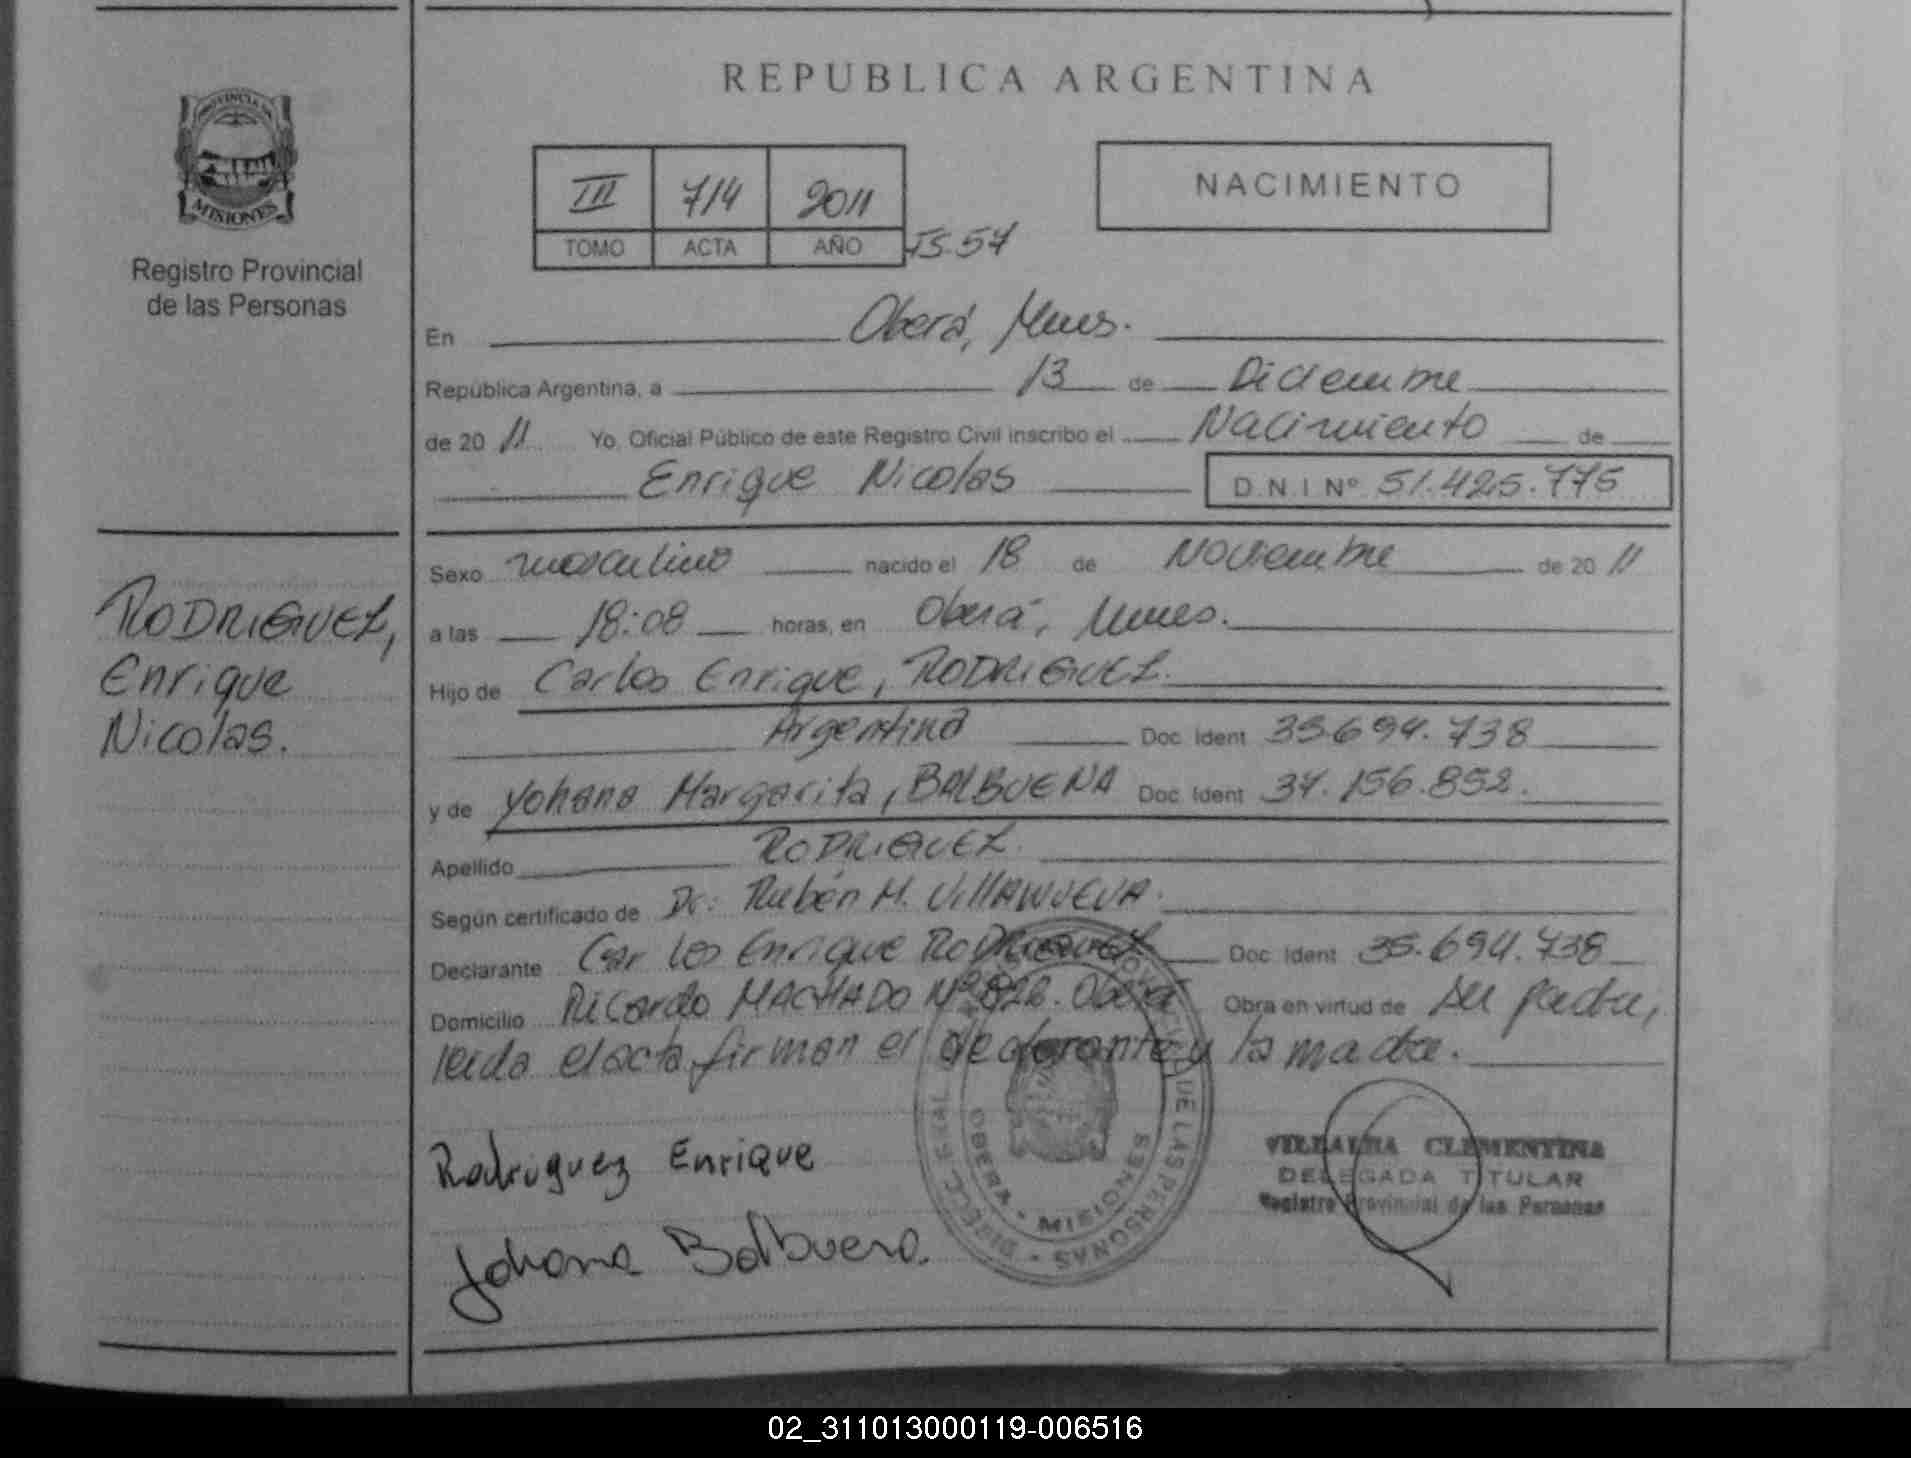 REPUBLICA ARGENTINA
PROVINCIA DE
MISIONES
Registro Provincial
de las Personas
III 714 2011
TOMO ACTA AÑO
NACIMIENTO
En Oberá, Mnes.
República Argentina, a 13 de Diciembre
de 20 11 Yo, Oficial Público de este Registro Civil inscribo el Nacimiento de
Enrique Nicolas D.N.I Nº 51.425.775
RODRIGUEZ,
Enrique
Nicolas.
Sexo masculino nacido el 18 de Noviembre de 20 11
a las 18:08 horas, en Oberá, Mnes.
Hijo de Carlos Enrique, RODRIGUEZ.
Argentina Doc. Ident 35.694.738
y de Yohana Margarita, BALBUENA Doc. Ident 37.156.852.
Apellido RODRIGUEZ.
Según certificado de Dr: Rubén M. VILLANUEVA.
Declarante Carlos Enrique RODRIGUEZ Doc. Ident 35.694.738
Domicilio Ricardo MACHADO Nº Oberá Obra en virtud de ser padre,
leída el acta firman el declarante y la madre.
Rodriguez Enrique
Johana Balbuena.
DE LAS PERSONAS
OBERA - MISIONES
VILLALBA CLEMENTINA
DELEGADA TITULAR
Registro Provincial de las Personas
02_311013000119-006516